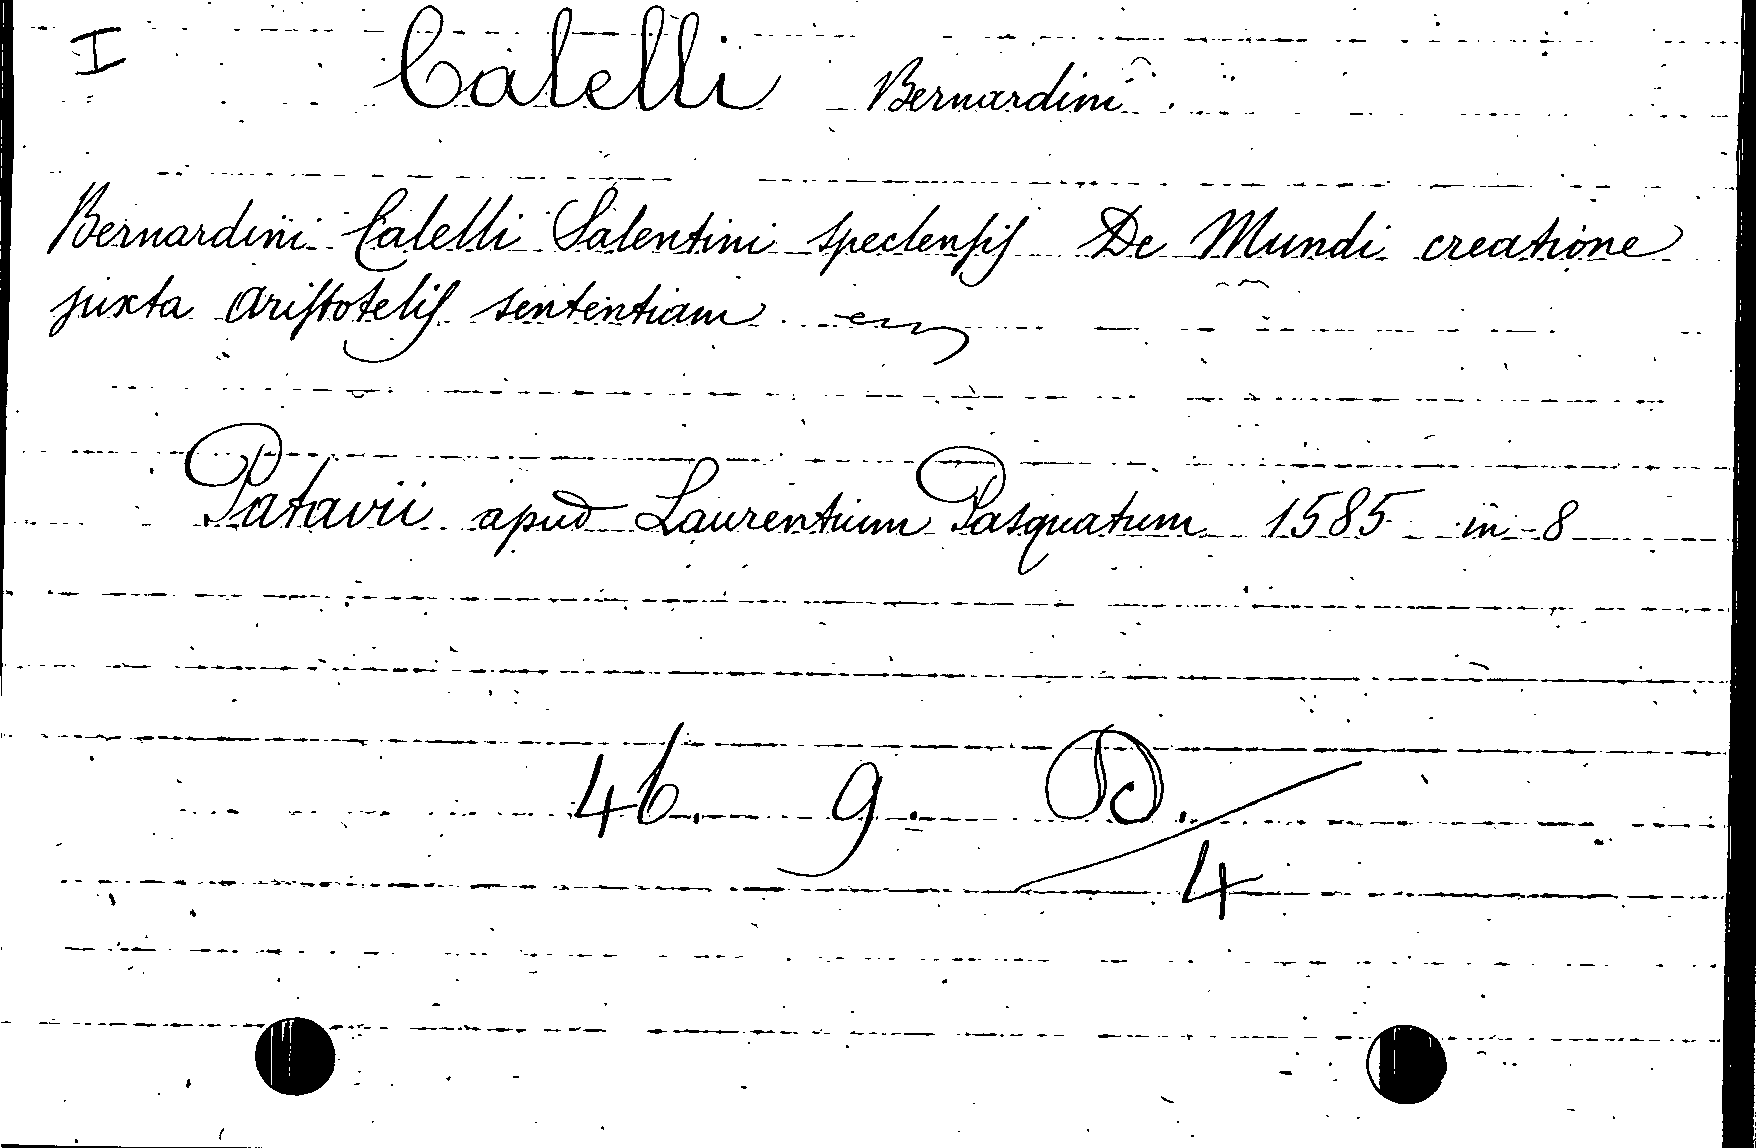 I Catelli Bernardini.
Bernardini Catelli Salentini speclensis De Mundi creatione
juxta Aristotelis sententiam
Patavii apud Laurentium Pasquatum 1585 in 8
46. 9. D./4